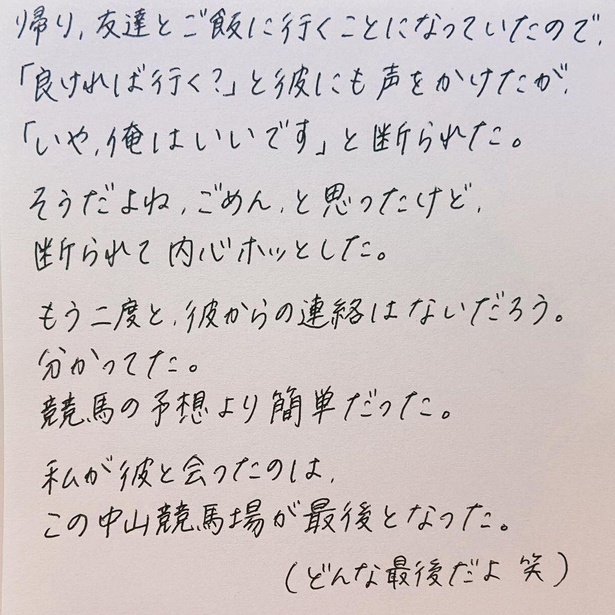 帰り、友達とご飯に行くことになっていたので、
「良ければ行く？」と彼にも声をかけたが、
「いや、俺はいいです」と断られた。
そうだよね、ごめん、と思ったけど、
断られて内心ホッとした。
もう二度と、彼からの連絡はないだろう。
分かってた。
競馬の予想より簡単だった。
私が彼と会ったのは、
この中山競馬場が最後となった。
（どんな最後だよ 笑）